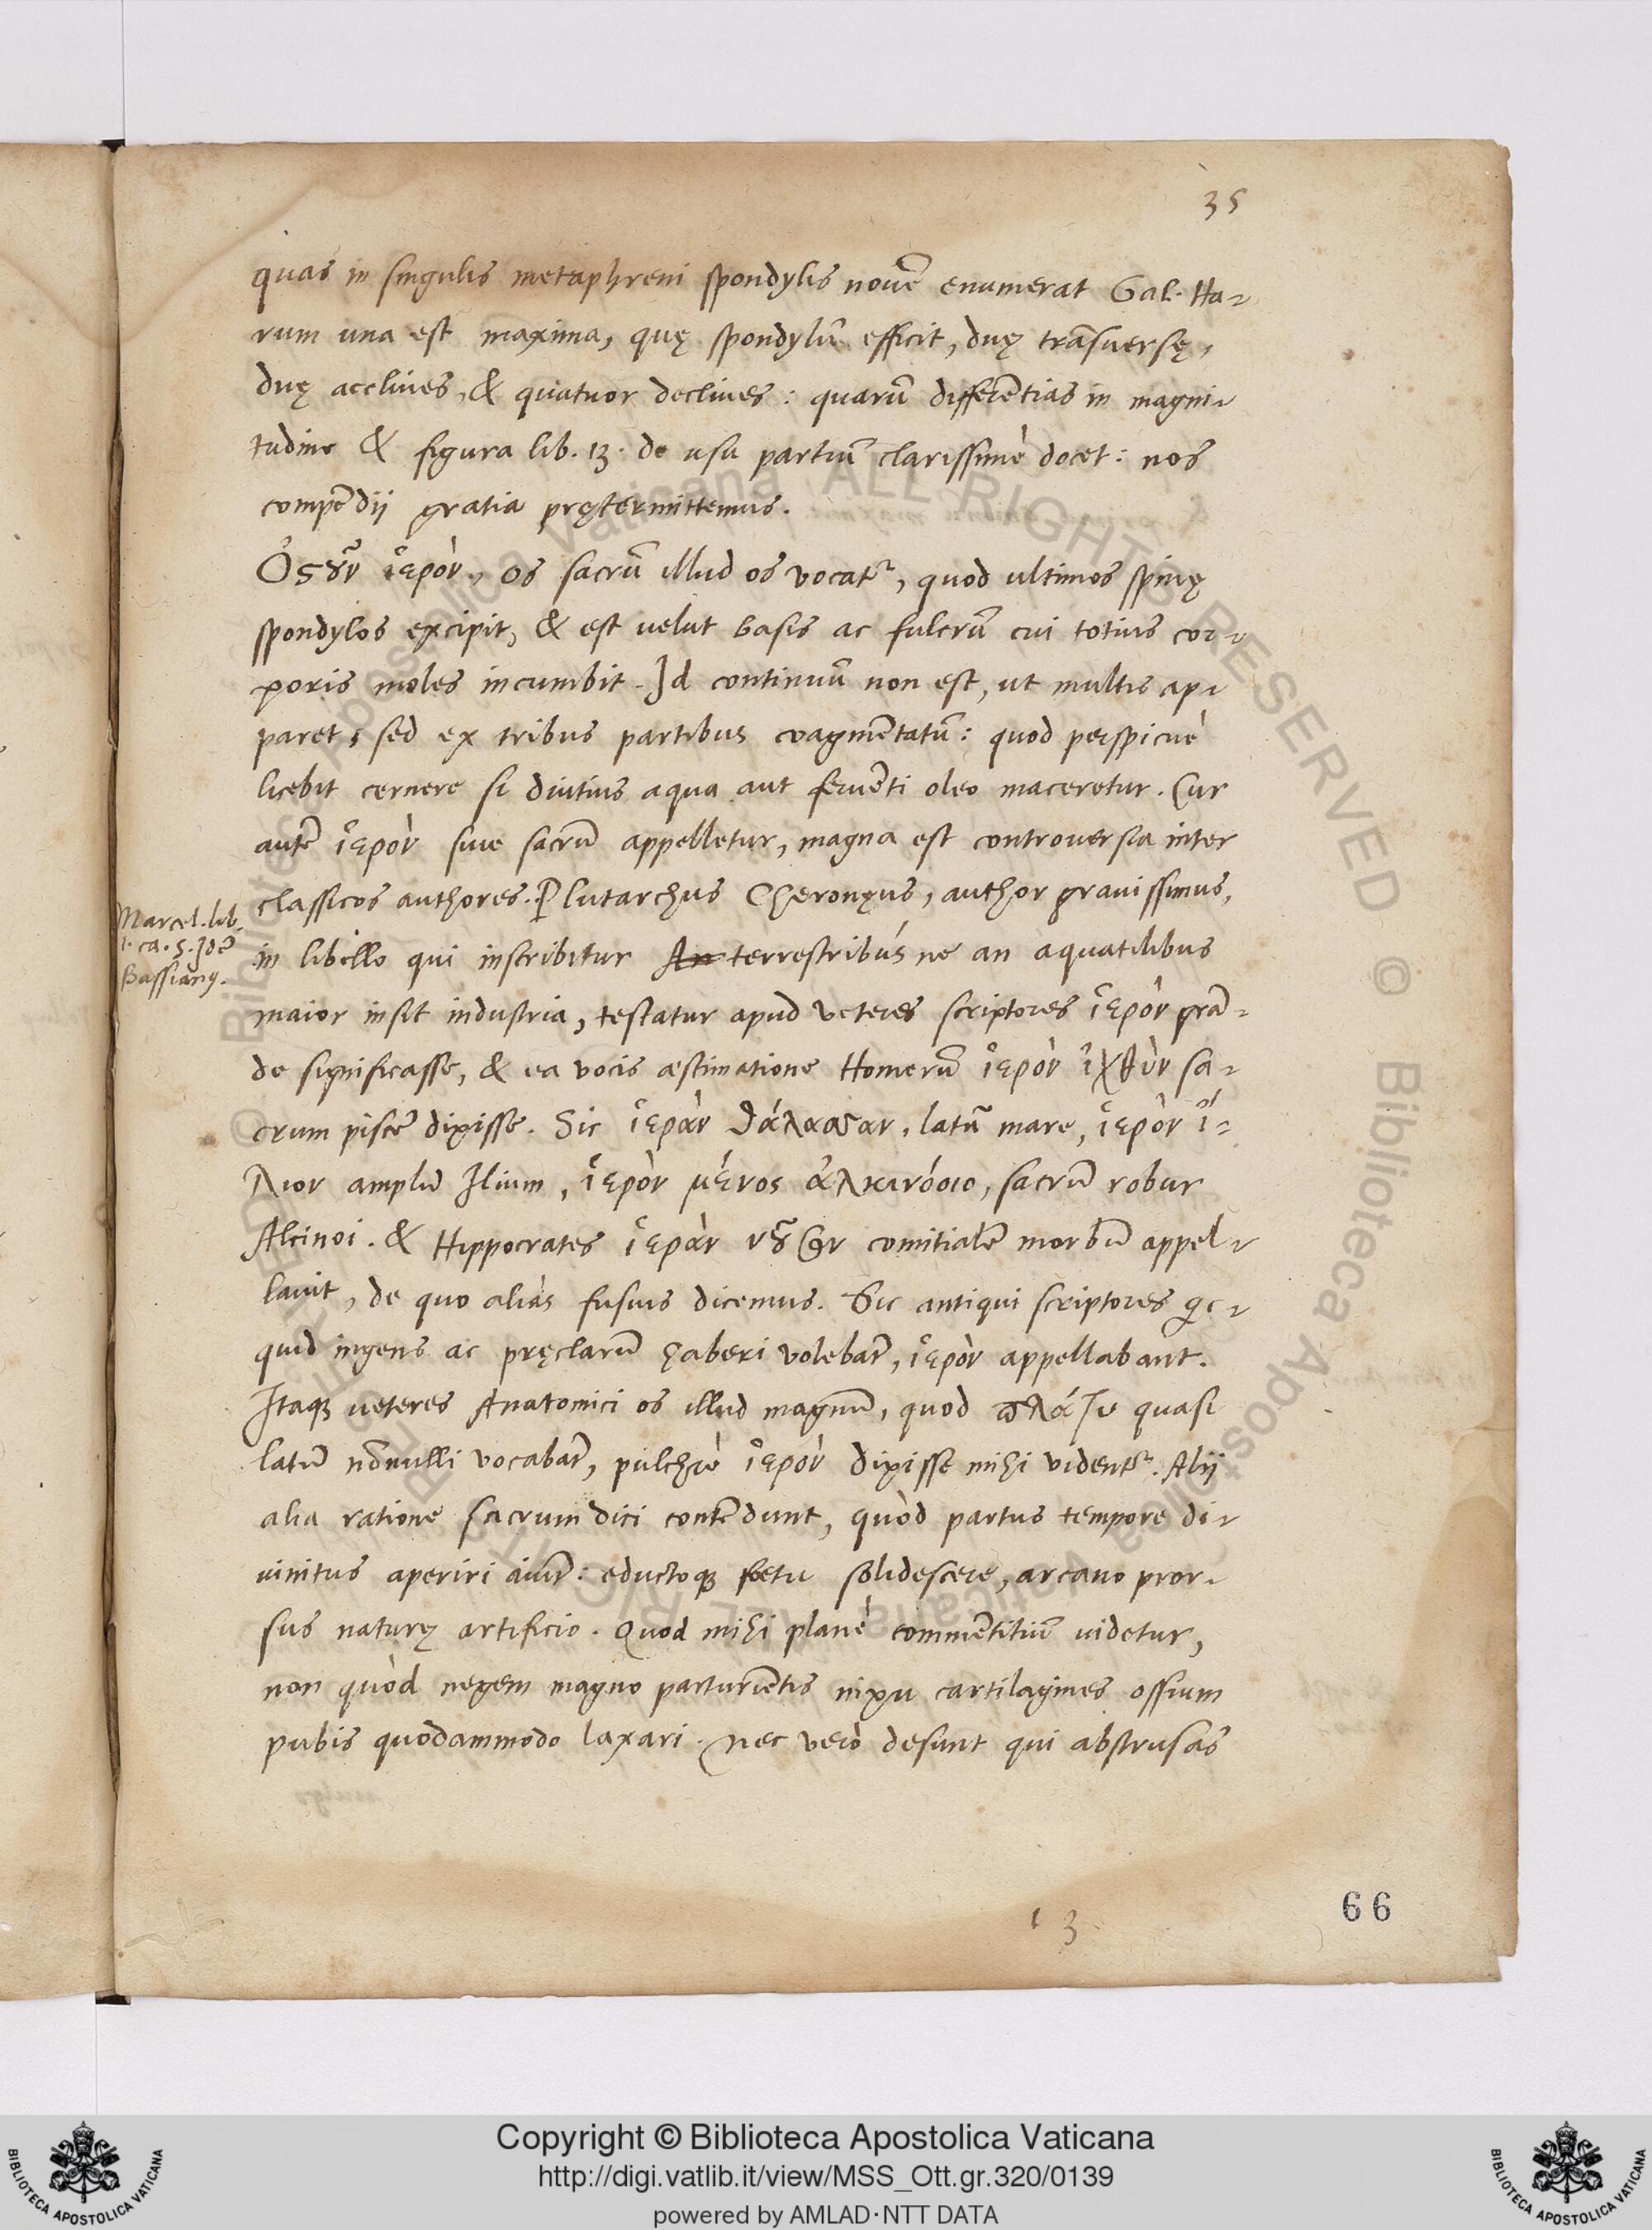 35
quas in singulis metaphreni spondylis nouē enumerat Gal. Ha-
rum una est maxima, quę spondylū efficit, duę trāsuersę,
duę accliues, & quatuor decliues: quarū differētias in magni-
tudine & figura lib. 13. de usu partiū clarissimè docet: nos
compēdii gratia prętermittemus.
Ὀςοῦν ἱερὸν, os sacrū illud os vocatᵣ, quod ultimos spinę
spondylos excipit, & est uelut basis ac fulcrū cui totius cor-
poris moles incumbit. Id continuū non est, ut multis ap-
paret, sed ex tribus partibus coagmētatū: quod perspicuè
licebit cernere si diutius aqua aut feruēti oleo maceretur. Cur
autē ἱερὸν siue sacrū appelletur, magna est controuersia inter
classicos authores. Plutarchus Cheronęus, author grauissimus,
Marcel. lib.
1. ca. 5. Idē
Bassianꝰ.
in libello qui inscribitur An terrestribus ne an aquatilibus
maior insit industria, testatur apud veteres scriptores ἱερὸν grā-
de significasse, & ea vocis æstimatione Homerū ἱερὸν ἰχθὺν sa-
crum piscē dixisse. Sic ἱερὰν θάλασσαν, latū mare, ἱερὸν ἴ-
λιον amplū Ilium, ἱερὸν μένος ἀλκινόοιο, sacrū robur
Alcinoi. & Hippocrates ἱερὰν νοῦσον comitialē morbū appel-
lauit, de quo aliàs fusius dicemus. Sic antiqui scriptores qc-
quid ingens ac pręclarū haberi volebāt, ἱερὸν appellabant.
Itaqꝫ ueteres Anatomici os illud magnū, quod πλάτυ quasi
latū nōnulli vocabāt, pulchrè ἱερὸν dixisse mihi videntᵣ. Alij
alia ratione sacrum dici contēdunt, quòd partus tempore di-
uinitus aperiri aiūt: eductoqꝫ fœtu solidescere, arcano pror-
sus naturę artificio. Quod mihi planè commētitiū uidetur,
non quòd negem magno parturiētis nixu cartilagines ossium
pubis quodammodo laxari. Nec verò desunt qui abstrusas
i 3
66
Copyright © Biblioteca Apostolica Vaticana
http://digi.vatlib.it/view/MSS_Ott.gr.320/0139
powered by AMLAD·NTT DATA